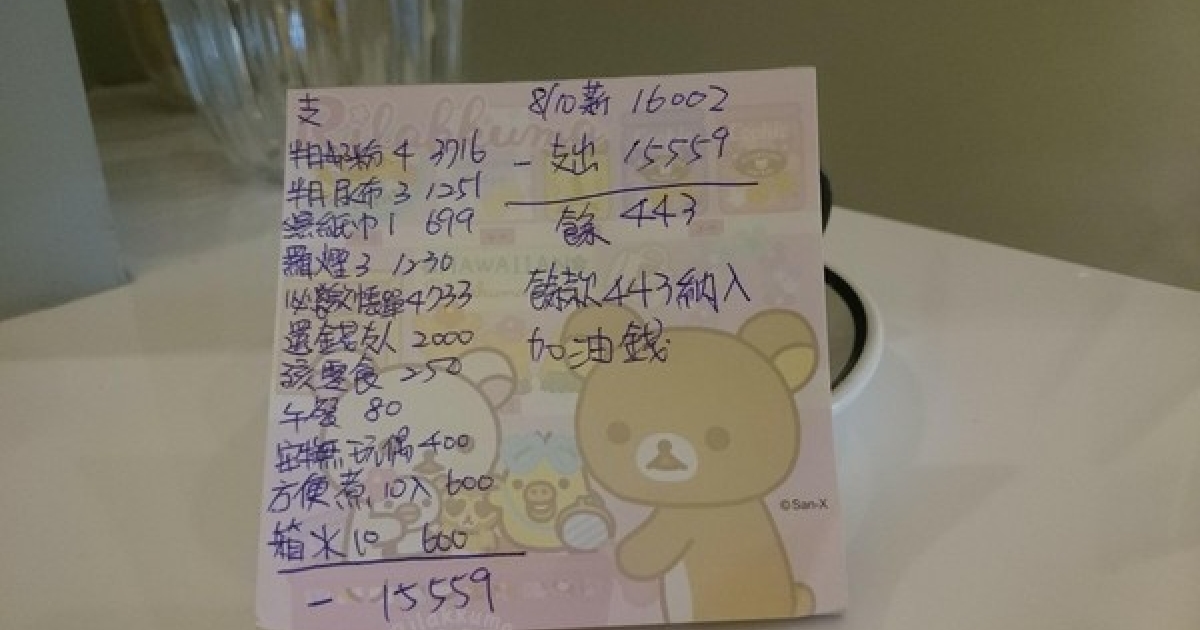 支
半月奶粉 4 3716
半月尿布 3 1251
濕紙巾 1 699
羅煙 3 1230
4733
還錢友人 2000
孩零食 250
午餐 80
玩偶 400
方便煮 10入 600
箱水 10 600
- 15559
8/10薪 16002
- 支出 15559
餘 443
餘款443納入
加油錢
Rilakkuma
HAWAIIAN
©San-X